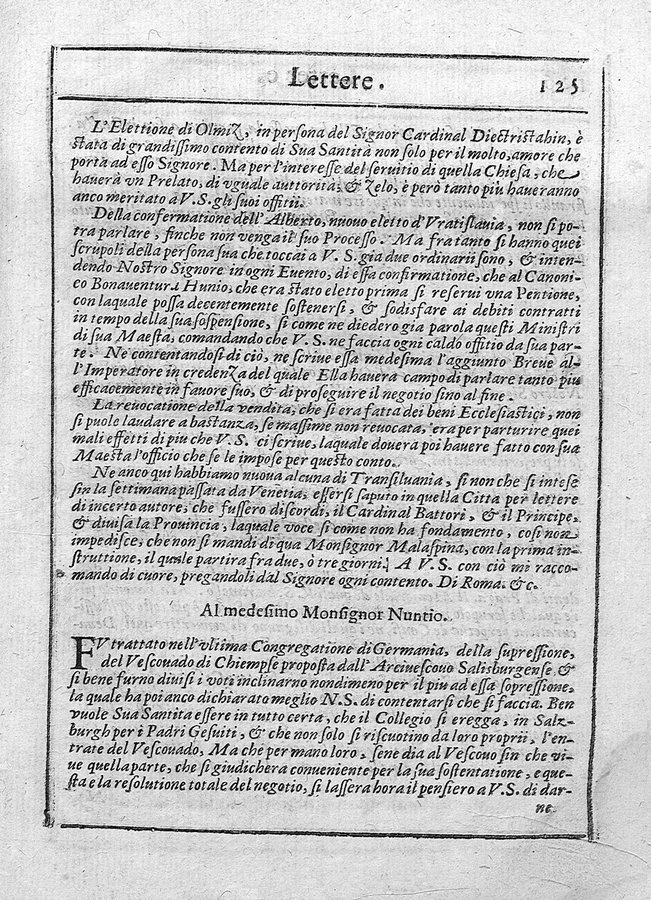 Lettere. 125
L'Elettione di Olmiz, in persona del Signor Cardinal Diectristahin, è
stata di grandissimo contento di Sua Santità non solo per il molto, amore che
porta ad esso Signore. Ma per l'interesse del seruitio di quella Chiesa, che
hauerà vn Prelato, di vguale auttorità, & Zelo, è però tanto più haueranno
anco meritato a V.S. gli suoi offitii.
Della confermatione dell'Alberto, nuouo eletto d'Vratislauia, non si po-
tra parlare, finche non venga il suo Processo. Ma fra tanto si hanno quei
scrupoli della persona sua che toccai a V.S. gia due ordinarii sono, & inten-
dendo Nostro Signore in ogni Euento, di essa confirmatione, che al Canoni-
co Bonauentura Hunio, che era stato eletto prima si reserui vna Pentione,
con laquale possa decentemente sostenersi, & sodisfare ai debiti contratti
in tempo della sua sospensione, si come ne diedero gia parola questi Ministri
di sua Maesta, comandando che V.S. ne faccia ogni caldo offitio da sua par-
te. Ne contentandosi di ciò, ne scriue essa medesima l'aggiunto Breue al-
l'Imperatore in credenza del quale Ella hauera campo di parlare tanto piu
efficacemente in fauore suo, & di proseguire il negotio sino al fine.
La reuocatione della vendita, che si era fatta dei beni Ecclesiastici, non
si puole laudare a bastanza, se massime non reuocata, era per parturire quei
mali effetti di piu che V.S. ci scriue, laquale douera poi hauere fatto con sua
Maesta l'officio che se le impose per questo conto.
Ne anco qui habbiamo nuoua alcuna di Transiluania, si non che si intese
sin la settimana passata da Venetia, essersi saputo in quella Citta per lettere
di incerto autore, che fussero discordi, il Cardinal Battori, & il Principe,
& diuisa la Prouincia, laquale voce si come non ha fondamento, cosi non
impedisce, che non si mandi di qua Monsignor Malaspina, con la prima in-
struttione, il quale partira fra due, ò tre giorni. A V.S. con ciò mi racco-
mando di cuore, pregandoli dal Signore ogni contento. Di Roma. &c.
Al medesimo Monsignor Nuntio.
FV trattato nell'vltima Congregatione di Germania, della supressione,
del Vescouado di Chiempse proposta dall'Arciuescouo Salisburgense &
si bene furno diuisi i voti inclinarno nondimeno per il piu ad essa sopressione,
la quale ha poi anco dichiarato meglio N.S. di contentarsi che si faccia. Ben
vuole Sua Santita essere in tutto certa, che il Collegio si eregga, in Salz-
burgh per i Padri Gesuiti, & che non solo si riscuotino da loro proprii, l'en-
trate del Vescouado, Ma che per mano loro, sene dia al Vescouo sin che vi-
ue quella parte, che si giudichera conueniente per la sua sostentatione, e que-
sta e la resolutione totale del negotio, si lassera hora il pensiero a V.S. di dar-
ne